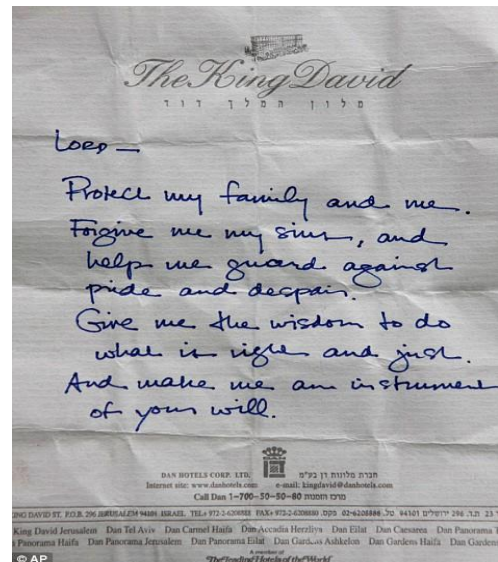 The King David
מלון המלך דוד
Lord —
Protect my family and me.
Forgive me my sins, and
help me guard against
pride and despair.
Give me the wisdom to do
what is right and just.
And make me an instrument
of your will.
DAN HOTELS CORP. LTD. חברת מלונות דן בע"מ
Internet site: www.danhotels.com e-mail: kingdavid@danhotels.com
Call Dan 1-700-50-50-80 מרכז הזמנות
ING DAVID ST, P.O.B. 296 JERUSALEM 94101 ISRAEL, TEL. 972-2-6208888 FAX. 972-2-6208880 רח' המלך דוד 23 ת.ד. 296 ירושלים 94101 טל. 02-6208888 פקס.
King David Jerusalem Dan Tel Aviv Dan Carmel Haifa Dan Accadia Herzliya Dan Eilat Dan Caesarea Dan Panorama T
n Panorama Haifa Dan Panorama Jerusalem Dan Panorama Eilat Dan Gardens Ashkelon Dan Gardens Haifa Dan Garden
A member of
The Leading Hotels of the World
© AP